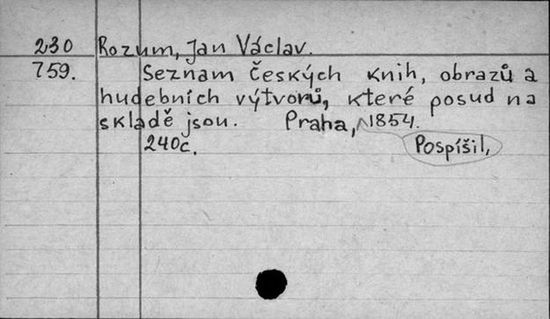 230 Rozum, Jan Václav.
759. Seznam českých knih, obrazů a
hudebních výtvorů, které posud na
skladě jsou. Praha, 1854.
240c. Pospíšil,